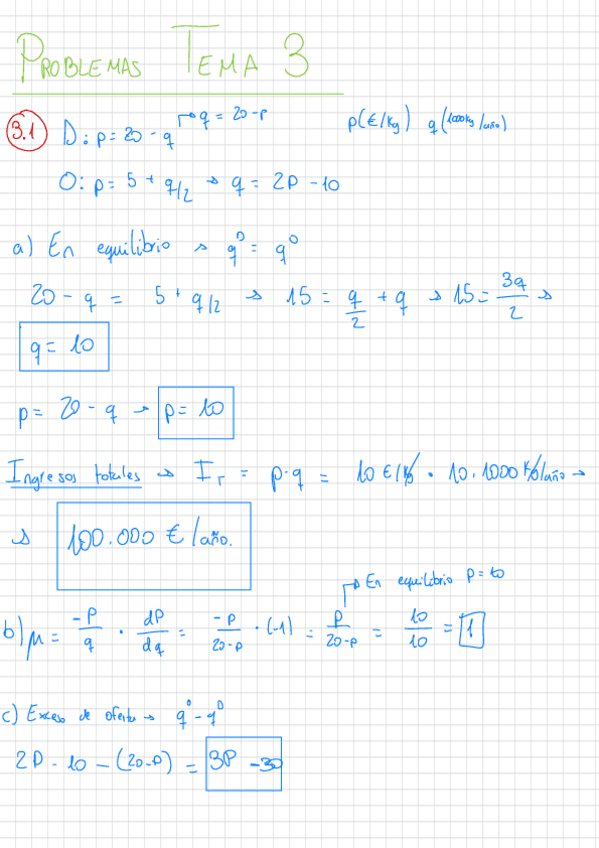 PROBLEMAS TEMA 3
3.1 D: p = 20 - q → q = 20 - p p(€/kg) q(1000kg/año)
O: p = 5 + q/2 → q = 2p - 10
a) En equilibrio → q^D = q^O
20 - q = 5 + q/2 → 15 = q/2 + q → 15 = 3q/2 →
q = 10
p = 20 - q → p = 10
Ingresos totales → I_T = p·q = 10 €/kg · 10.1000 kg/año →
→ 100.000 €/año.
→ En equilibrio p = 10
b) μ = -p/q · dp/dq = -p/20-p · (-1) = p/20-p = 10/10 = 1
c) Exceso de oferta → q^O - q^D
2p - 10 - (20-p) = 3p - 30